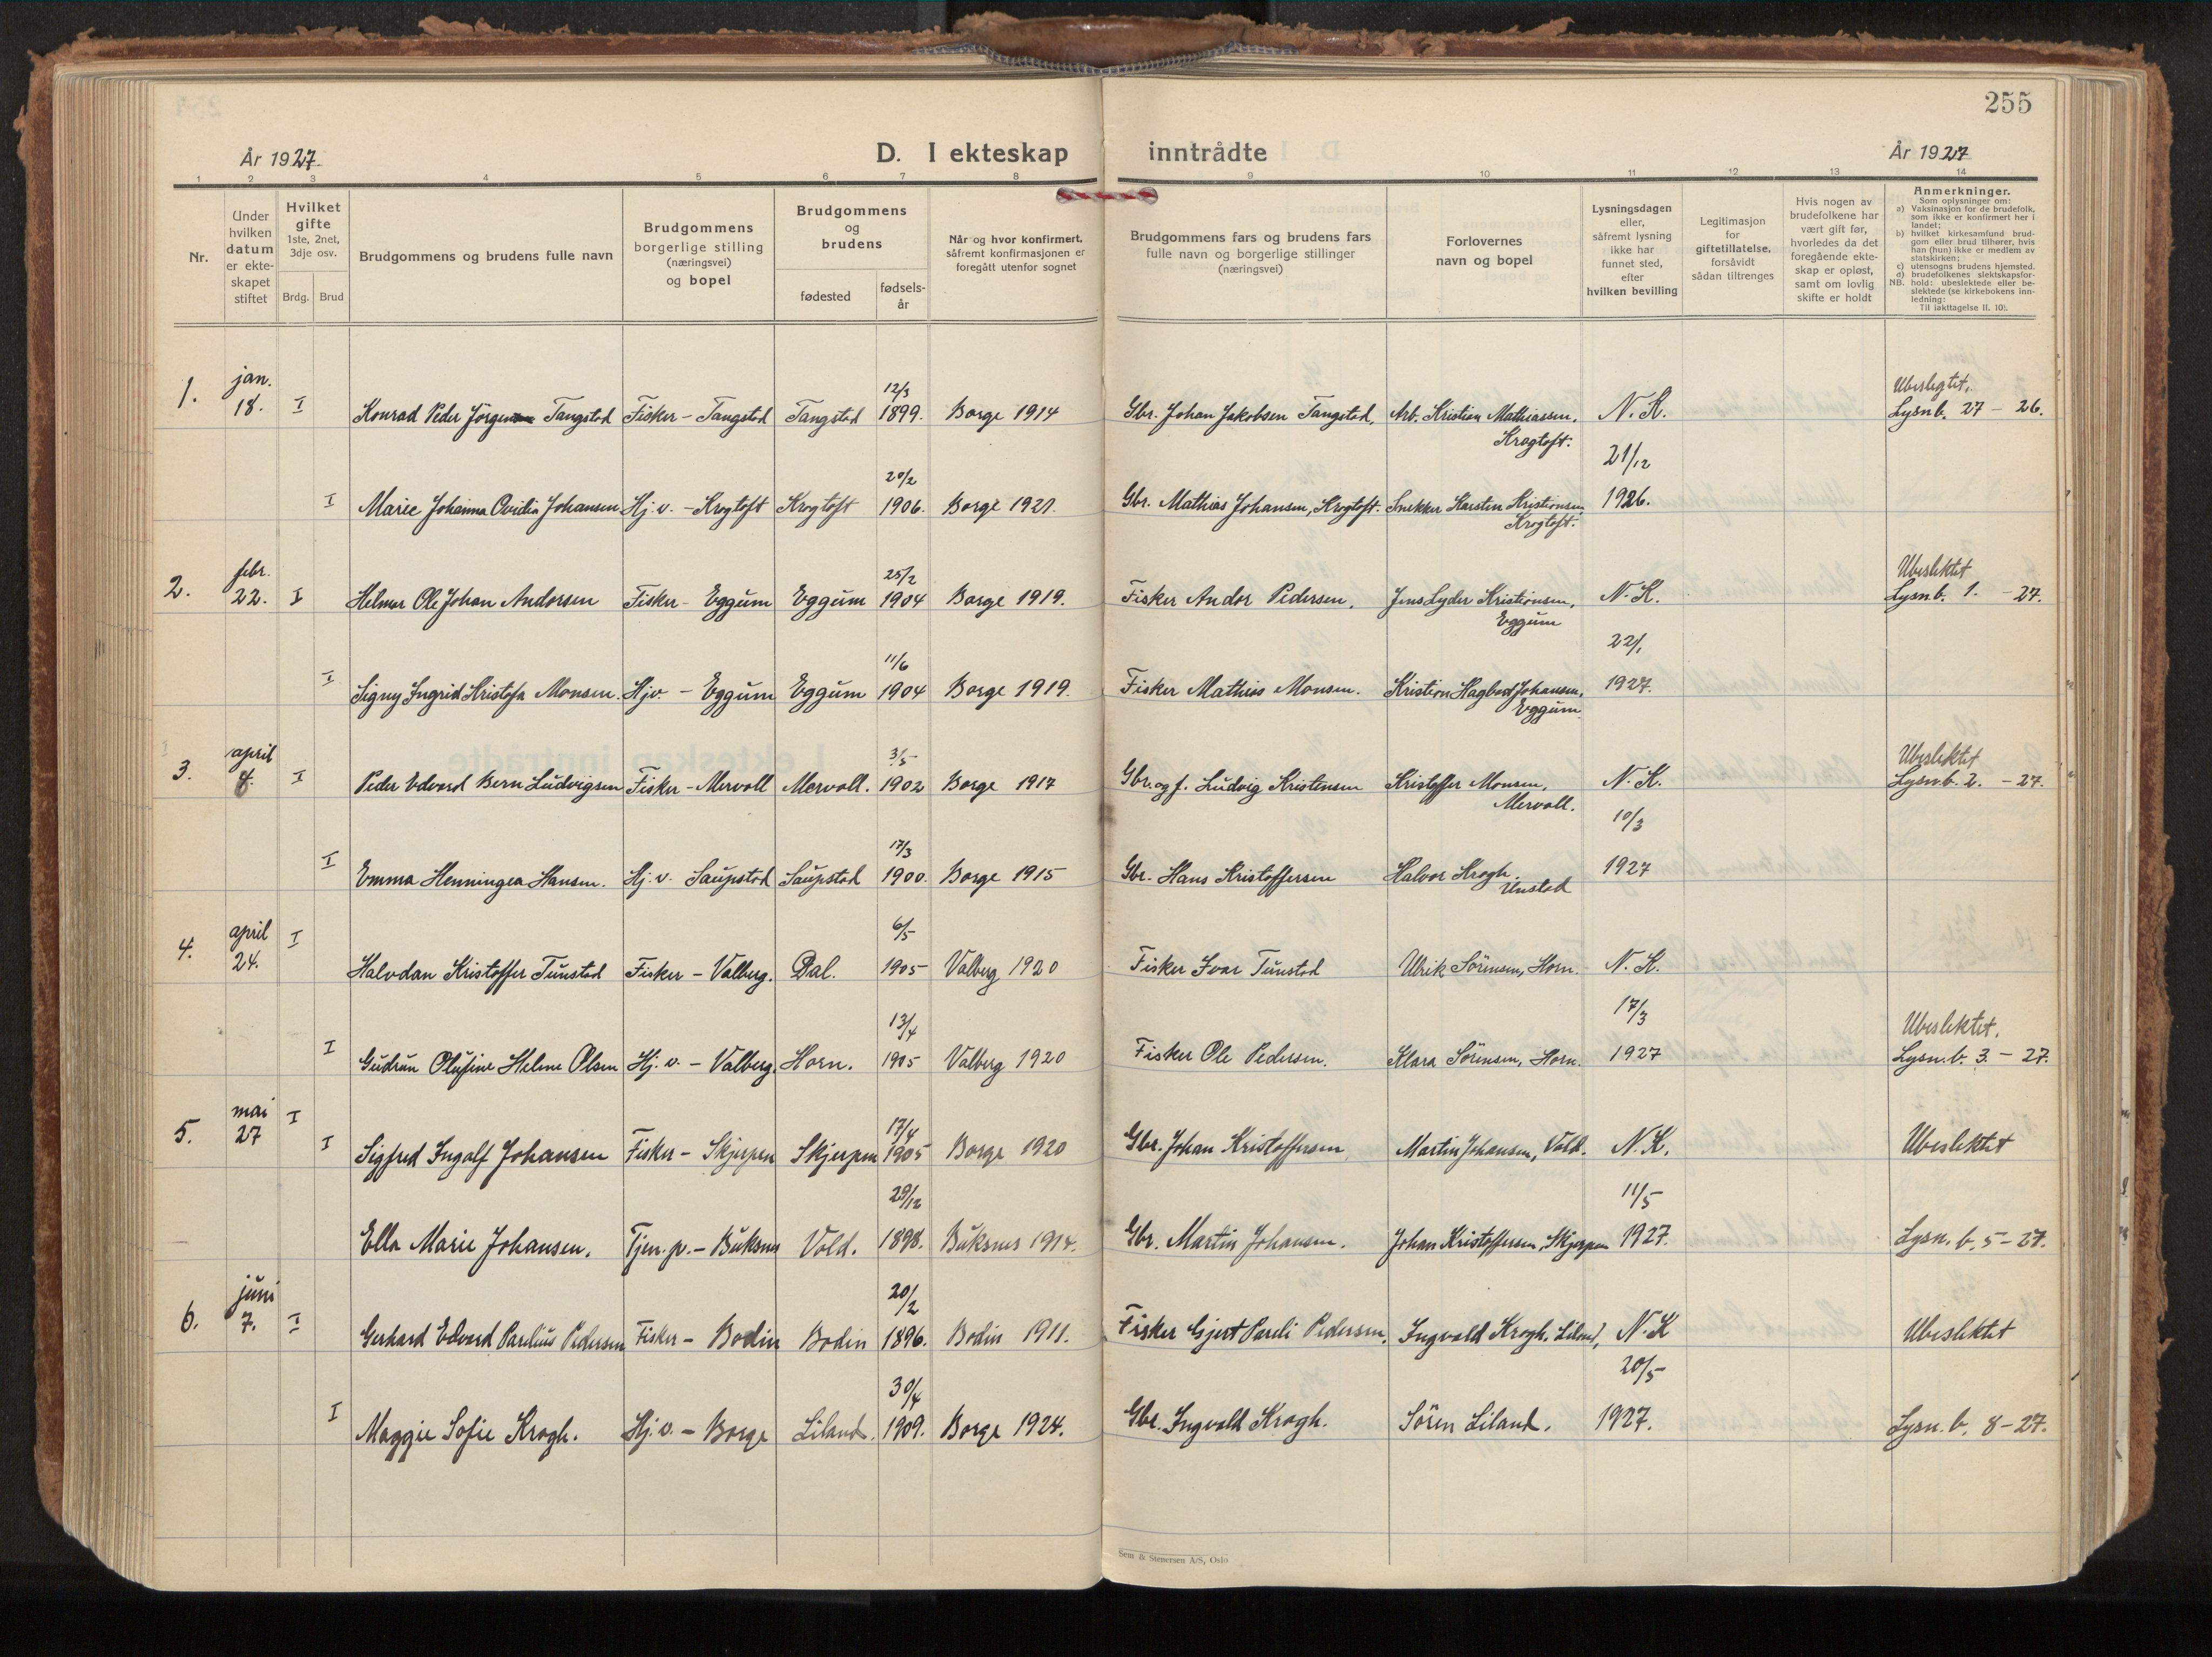 255
År 1927
D. I ekteskap inntrådte
År 1927
1 2 3 4 5 6 7 8 9 10 11 12 13 14
Nr.
Under hvilken datum er ekte-skapet stiftet
Hvilket gifte 1ste, 2net, 3dje osv.
Brdg. Brud
Brudgommens og brudens fulle navn
Brudgommens borgerlige stilling (næringsvei) og bopel
Brudgommens og brudens
fødested
fødsels-år
Når og hvor konfirmert, såfremt konfirmasjonen er foregått utenfor sognet
Brudgommens fars og brudens fars fulle navn og borgerlige stillinger (næringsvei)
Forlovernes navn og bopel
Lysningsdagen eller, såfremt lysning ikke har funnet sted, efter hvilken bevilling
Legitimasjon for giftetillatelse, forsåvidt sådan tiltrenges
Hvis nogen av brudefolkene har vært gift før, hvorledes da det foregående ekte-skap er opløst, samt om lovlig skifte er holdt
Anmerkninger.
Som oplysninger om:
a) Vaksinasjon for de brudefolk, som ikke er konfirmert her i landet;
b) hvilket kirkesamfund brud-gom eller brud tilhører, hvis han (hun) ikke er medlem av statskirken;
c) utensogns brudens hjemsted.
d) brudefolkenes slektskapsfor-hold: ubeslektede eller be-slektede (se kirkebokens inn-ledning:
NB.
Til iakttagelse II. 10).
1. jan. 18. I Konrad Peder Jörgen Tangstad Fisker - Tangstad Tangstad 12/3 1899. Borge 1914 Gbr. Johan Jakobsen Tangstad, Arb. Kristian Mathiassen, Krogtoft. N. K. Ubeslegtet. Lysn b. 27 - 26.
21/12
I Marie Johanna Ovidia Johansen Hj. v. - Krogtoft Krogtoft 20/2 1906. Borge 1921. Gbr. Mathias Johansen, Krogtoft. Snekker Karsten Kristiansen Krogtoft. 1926.
2. febr. 22. I Helmer Ole Johan Andorsen Fisker - Eggum Eggum 25/2 1904 Borge 1919. Fisker Andor Pedersen. Jens Lyder Kristiansen, Eggum N. K. Ubeslektet Lysn. b. 1. - 27.
22/1
I Signy Ingrid Kristofa Monsen. Hjv - Eggum Eggum 11/6 1904 Borge 1919. Fisker Mathias Monsen. Kristian Hagbart Johansen, Eggum. 1927.
3. april I Peder Edvard Bern Ludvigsen Fisker - Mervoll Mervoll. 3/5 1902 Borge 1917 Gbr. og f. Ludvig Kristensen Kristoffer Monsen, Mervoll. N. K. Ubeslektet Lysn. b. 2. - 27.
10/3
I Emma Henningea Hansen. Hj. v. Saupstad Saupstad 17/3 1900. Borge 1915 Gbr. Hans Kristoffersen Halvor Krogh. Unstad 1927
4. april 24. I Halvdan Kristoffer Tunstad Fisker - Valberg. Dal. 6/5 1905 Valberg 1920 Fisker Ivar Tunstad Ulrik Sörensen, Horn. N. K.
17/3
I Gudrun Olufine Helene Olsen Hj. v. - Valberg. Horn. 13/4 1905 Valberg 1920 Fisker Ole Pedersen. Klara Sörensen, Horn. 1927 Ubeslektet. Lysn. b. 3. - 27.
5. mai 27 I I Sigfred Ingolf Johansen Fisker - Skjerpen Skjerpen 17/4 1905 Borge 1920 Gbr. Johan Kristoffersen Martin Johansen, Vold. N. K. Ubeslektet
11/5
Ella Marie Johansen. Tjen. p. - Buksnes Vold. 29/12 1898. Buksnes 1914. Gbr. Martin Johansen. Johan Kristoffersen, Skjerpen 1927. Lysn. b. 5 - 27.
6. juni 7. I Gerhard Edvard Parelius Pedersen Fisker - Bodin Bodin 20/2 1896. Bodin 1911. Fisker Gjert Pareli Pedersen. Ingvald Krogh. Liland, N. K Ubeslektet
20/5
I Maggie Sofie Krogh. Hj. v. - Borge Liland. 30/4 1909. Borge 1924. Gbr. Ingvald Krogh. Sören Liland. 1927. Lysn. b. 8 - 27.
Sem & Stenersen A/S, Oslo